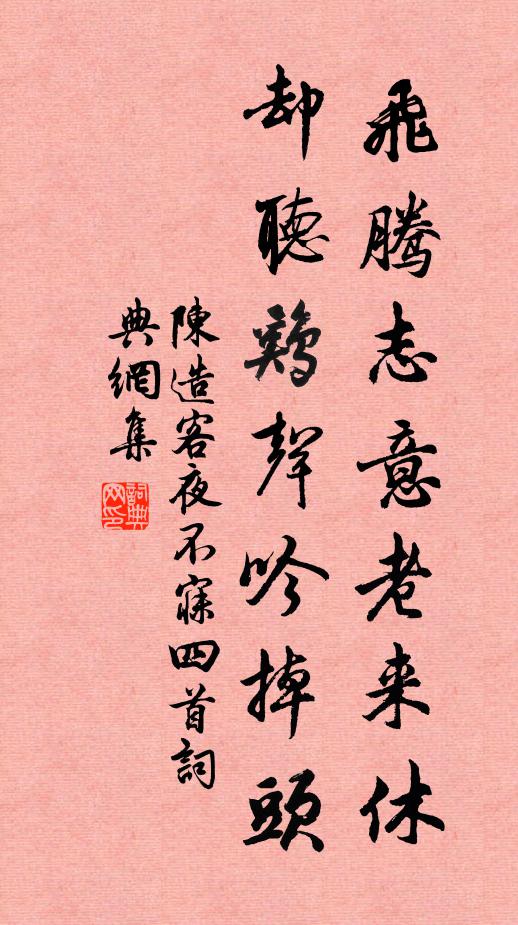 飛騰志意老來休
却聽鷄聲吟掉頭
陳造客夜不寐四首詞
典網集
詞典網印